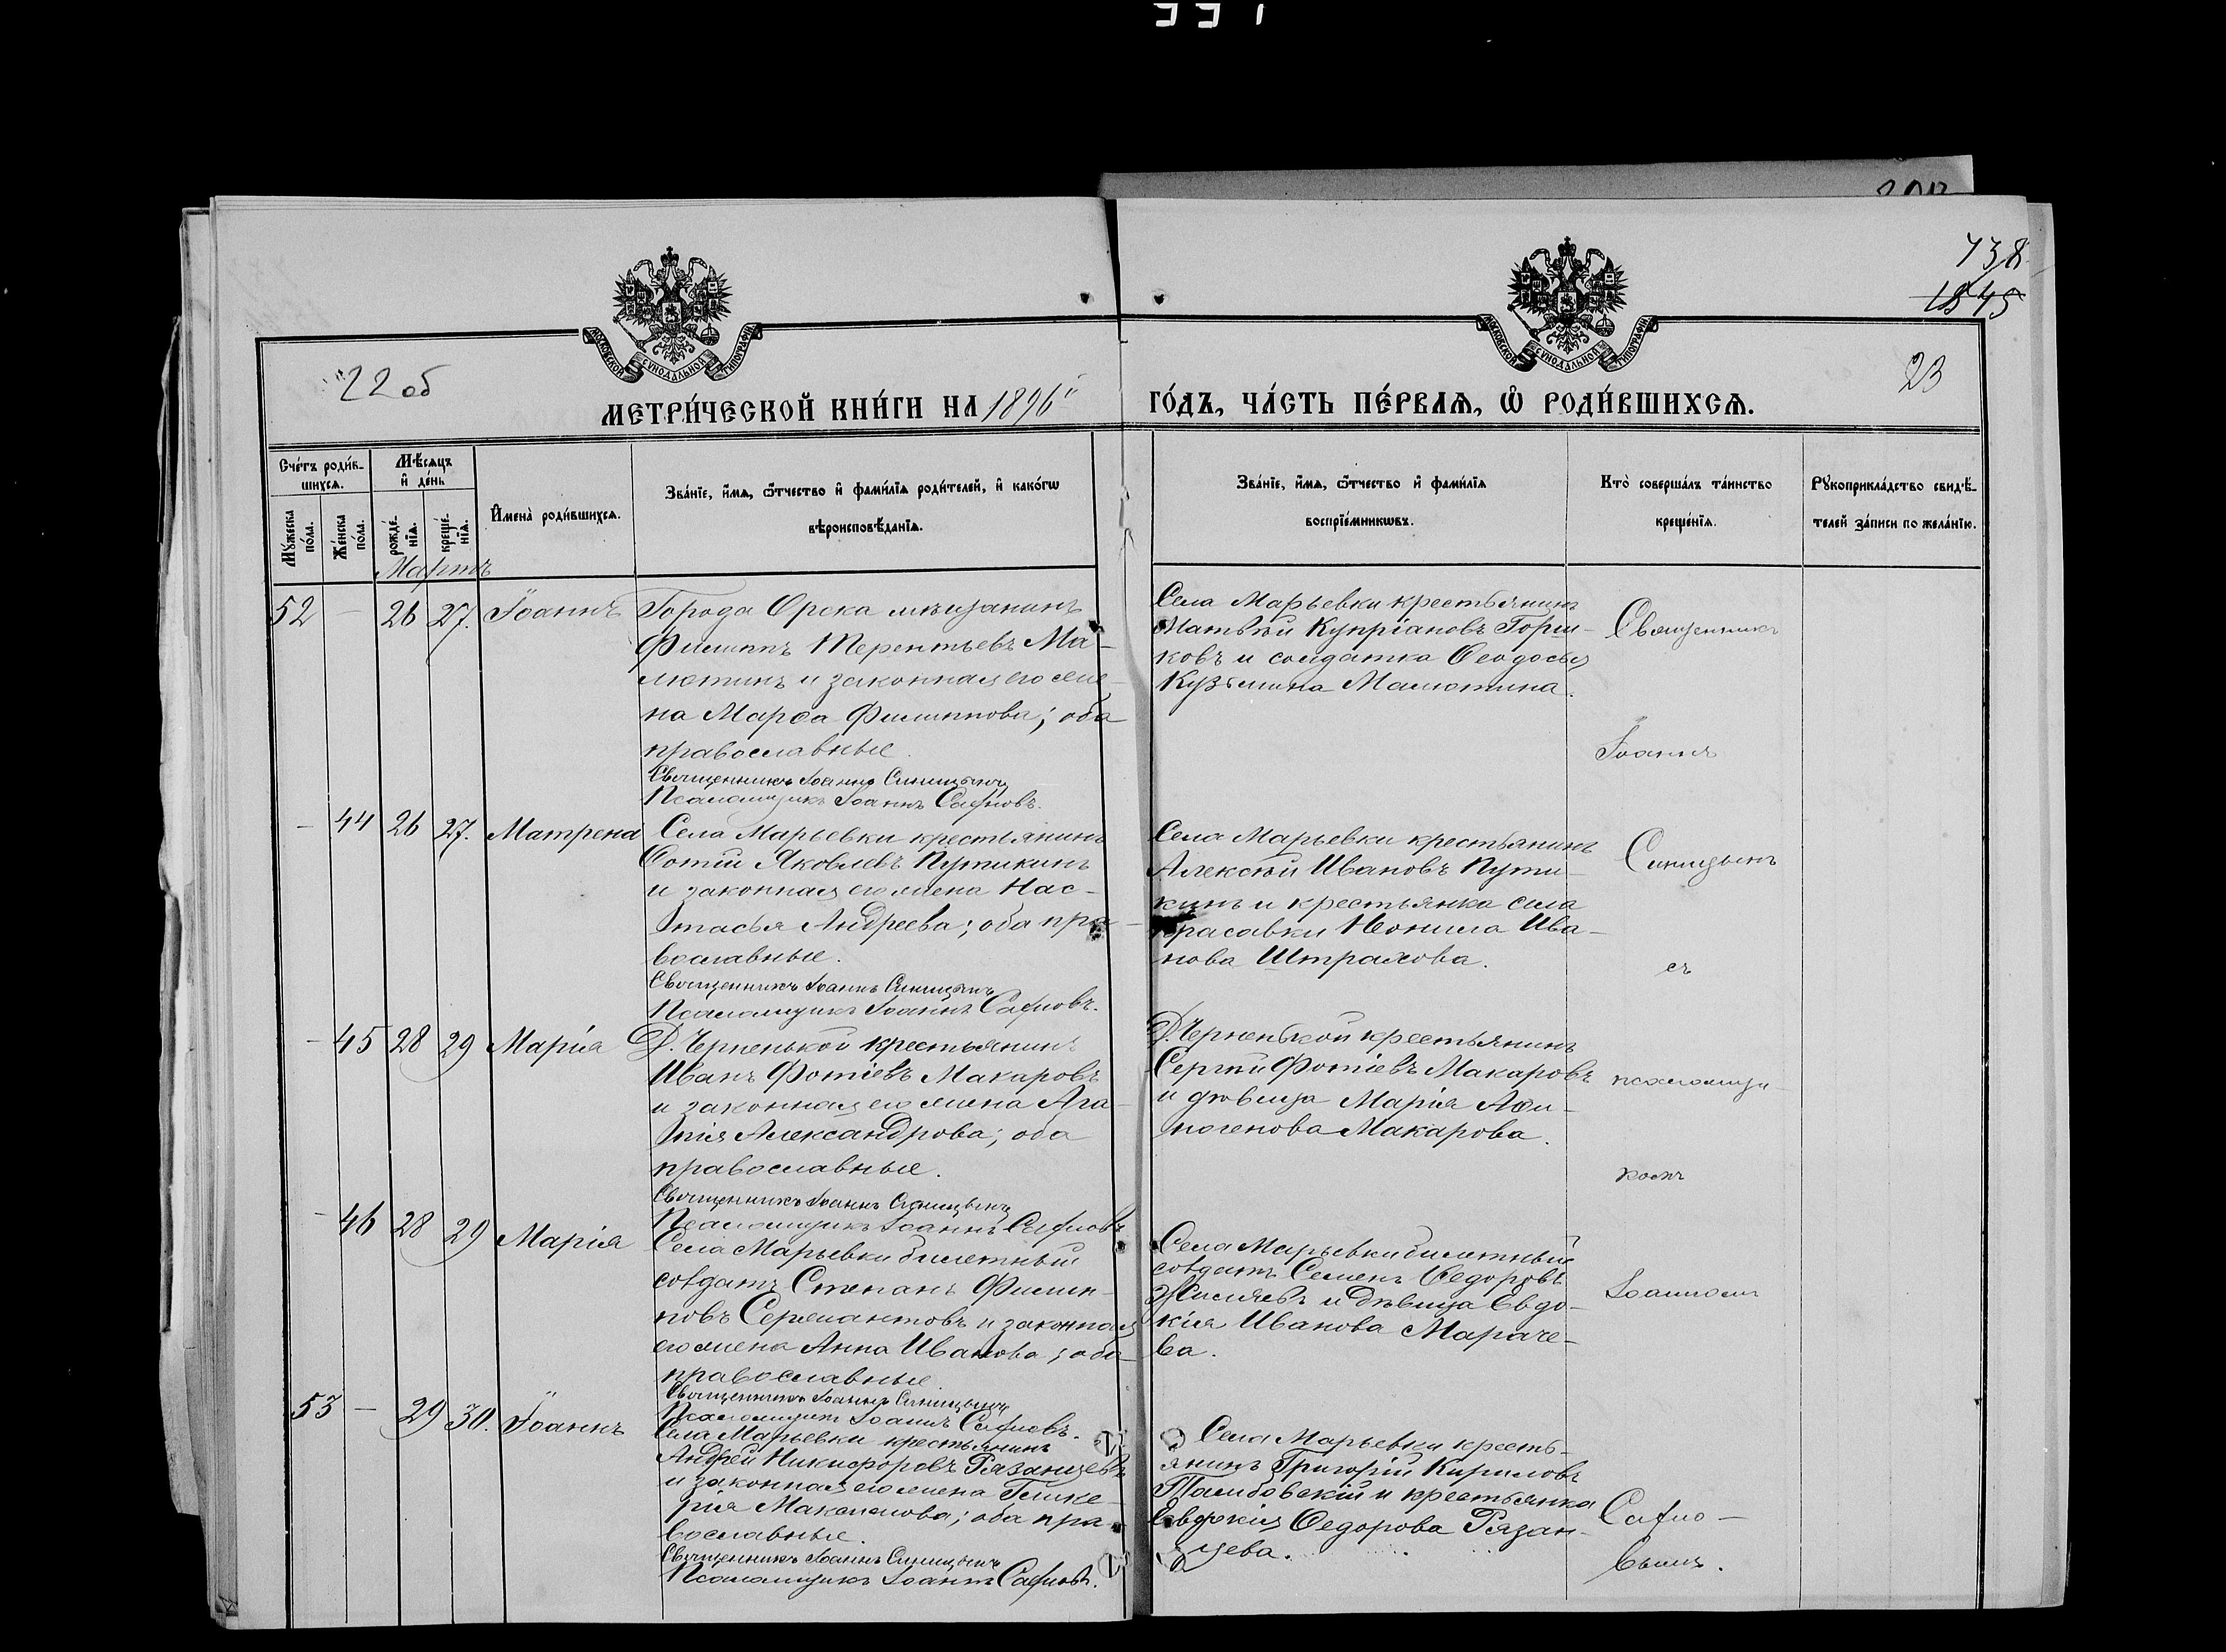 738
1845
22 об
23
МЕТРИ́ЧЕСКОЙ КНИ́ГИ НА 1896 ГО́ДЪ, ЧА́СТЬ ПЕ́РВАѦ, Ѽ РОДИ́ВШИХСѦ.
МОСКОВСКОЙ СѴНОДАЛЬНОЙ ТИПОГРАФІИ
МОСКОВСКОЙ СѴНОДАЛЬНОЙ ТИПОГРАФІИ
Сче́тъ роди́в-
шихсѧ.
Мꙋ́жеска по́ла.
Же́нска по́ла.
Мѣ́сѧцъ и҆ де́нь
рожде́-
нїѧ.
креще́-
нїѧ.
И҆мена̀ роди́вшихсѧ.
Зва́нїе, и҆́мѧ, ѻ҆́тчество и҆ фами́лїѧ роди́телей, и҆ како́гѡ
вѣроисповѣ́данїѧ.
Зва́нїе, и҆́мѧ, ѻ҆́тчество и҆ фами́лїѧ
воспрїе́мникѡвъ.
Кто̀ соверша́лъ та́инство
креще́нїѧ.
Рꙋкоприкла́дство свидѣ́-
телей за́писи по жела́нїю.
Мартъ
52 — 26 27. Іоаннъ
Города Орска мѣщанинъ
Филиппъ Терентьевъ Ма-
лютинъ и законная его же-
на Марѳа Филиппова; оба
православные.
Священникъ Іоаннъ Синицынъ
Псаломщикъ Іоаннъ Сафновъ.
Села Марьевки крестьянинъ
Матвѣй Купріановъ Горш-
ковъ и солдатка Ѳеодосья
Кузьмина Малютина.
— 44 26 27. Матрена
Села Марьевки крестьянинъ
Ѳотій Яковлевъ Путикинъ
и законная его жена Нас-
тасья Андреева; оба пра-
вославные.
Священникъ Іоаннъ Синицынъ
Псаломщикъ Іоаннъ Сафновъ.
Села Марьевки крестьянинъ
Алексѣй Ивановъ Пути-
кинъ и крестьянка села
Красавки Неонила Ива-
нова Штрахова.
— 45 28 29 Марія
Д. Черненькой крестьянинъ
Иванъ Фотіевъ Макаровъ
и законная его жена Ага-
пія Александрова; оба
православные.
Священникъ Іоаннъ Синицынъ
Псаломщикъ Іоаннъ Сафновъ
Д. Черненькой крестьянинъ
Сергѣй Фотіевъ Макаровъ
и дѣвица Марія Аѳи-
ногенова Макарова.
— 46 28 29 Марія
Села Марьевки билетный
солдатъ Степанъ Филип-
повъ Сержантовъ и законная
его жена Анна Иванова; оба
православные
Священникъ Іоаннъ Синицынъ
Псаломщикъ Іоаннъ Сафновъ.
Села Марьевки билетный
солдатъ Семенъ Ѳедоровъ
Жиляевъ и дѣвица Евдо-
кія Иванова Мараче-
ва.
53 — 29 30. Іоаннъ
Села Марьевки крестьянинъ
Андрей Никифоровъ Рязанцевъ
и законная его жена Глике-
рія Максимова; оба пра-
вославные.
Священникъ Іоаннъ Синицынъ
Псаломщикъ Іоаннъ Сафновъ.
Села Марьевки кресть-
янинъ Григорій Кириловъ
Тамбовскій и крестьянка
Евдокія Ѳедорова Рязан-
цева.
Священникъ
Іоаннъ
Синицынъ
съ
псаломщи-
комъ
Іоанномъ
Сафно-
вымъ.